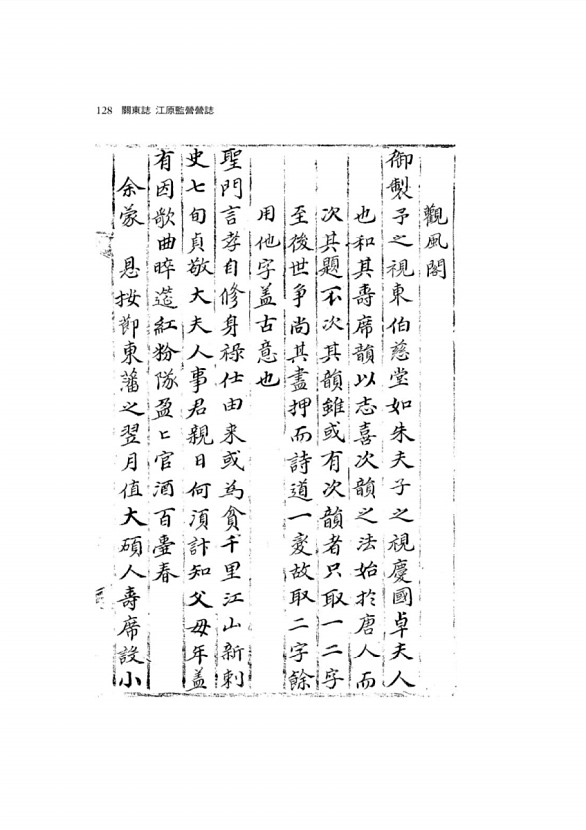 128 關東誌 江原監營營誌
觀風閣
御製予之視東伯慈堂如朱夫子之視慶國卓夫人
也和其壽席韻以志喜次韻之法始於唐人而
次其題不次其韻雖或有次韻者只取一二字
至後世爭尚其盡押而詩道一變故取二字餘
用他字盖古意也
聖門言孝自修身祿仕由来或爲貧千里江山新刺
史七旬貞敬大夫人事君親日何湏計知父母年盖
有因歌曲啐遊紅粉隊盈〻官酒百壺春
余蒙 恩按節東藩之翌月值大碩人壽席設小